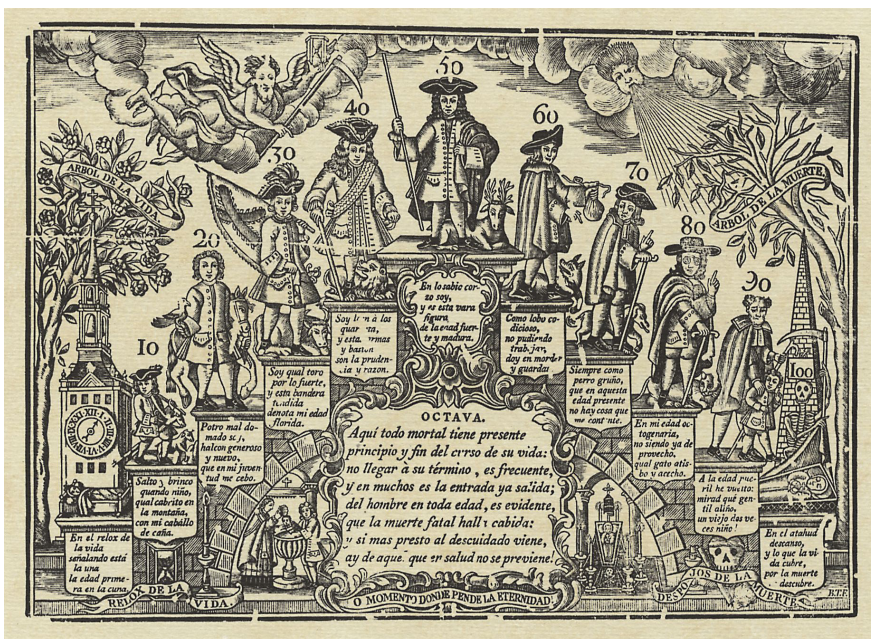 50
40
60
30
70
20
80
90
10
100
ARBOL DE LA VIDA
ARBOL DE LA MUERTE.
En el relox de
la vida
señalando está
la una
la edad prime-
ra en la cuna.
Salto y brinco
quando niño,
qual cabrito en
la montaña,
con mi caballo
de caña.
Potro mal do-
mado soy,
halcon generoso
y nuevo,
que en mi juven-
tud me cebo.
Soy qual toro
por lo fuerte,
y esta bandera
denota mi edad
florida.
Soy à los
y esta
y baston
son la pruden-
y razon.
En lo sabio cor-
zo soy,
y es esta vara
figura
de la edad fuer-
te y madura.
Como lobo co-
dicioso,
no pudiendo
trabajar,
doy en morder
y guardar
Siempre como
perro gruño,
que en aquesta
edad presente
no hay cosa que
me contente.
En mi edad oc-
togenaria,
no siendo ya de
provecho,
qual gato atis-
bo y acecho.
A la edad pue-
ril he vuelto:
mirad qué gen-
til aliño,
un viejo dos ve-
ces niño!
En el atahud
descanso,
y lo que la vi-
da cubre,
por la muerte
descubre.
OCTAVA.
Aquí todo mortal tiene presente
principio y fin del curso de su vida:
no llegar à su término, es frequente,
y en muchos es la entrada ya salida;
del hombre en toda edad, es evidente,
que la muerte fatal halla cabida:
y si mas presto al descuidado viene,
ay de aquel que en salud no se previene!
RELOX DE LA VIDA.
O MOMENTO DONDE PENDE LA ETERNIDAD!
DESPOJOS DE LA MUERTE
B.T.F.